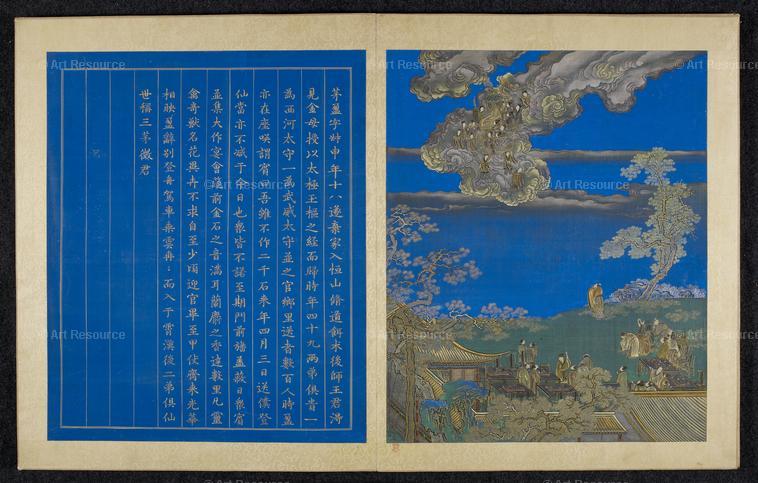 © Art Resource
© Art Resource
© Art Resource
© Art Resource
© Art Resource
© Art Resource
© Art Resource
© Art Resource
茅盈字叔申年十八遂棄家入恒山脩道餌朮後師王君得
見金母授以太極玉樞之經而歸時年四十九兩弟俱貴一
為西河太守一為武威太守並之官鄉里送者數百人時盈
亦在座謂賓曰吾雖不作二千石来年四月三日送僕登
仙當亦不減于今日也衆皆不諾至期門前盖蔽日衆賓
並集大作宴會前金石之音滿耳蘭麝之香達數里凡靈
禽奇獸名花異卉不求自至少頃迎官畢至甲仗齊来光華
相映盈辭别登舟駕車乘雲冉〻而入于霄漢後二弟俱仙
世稱三茅君